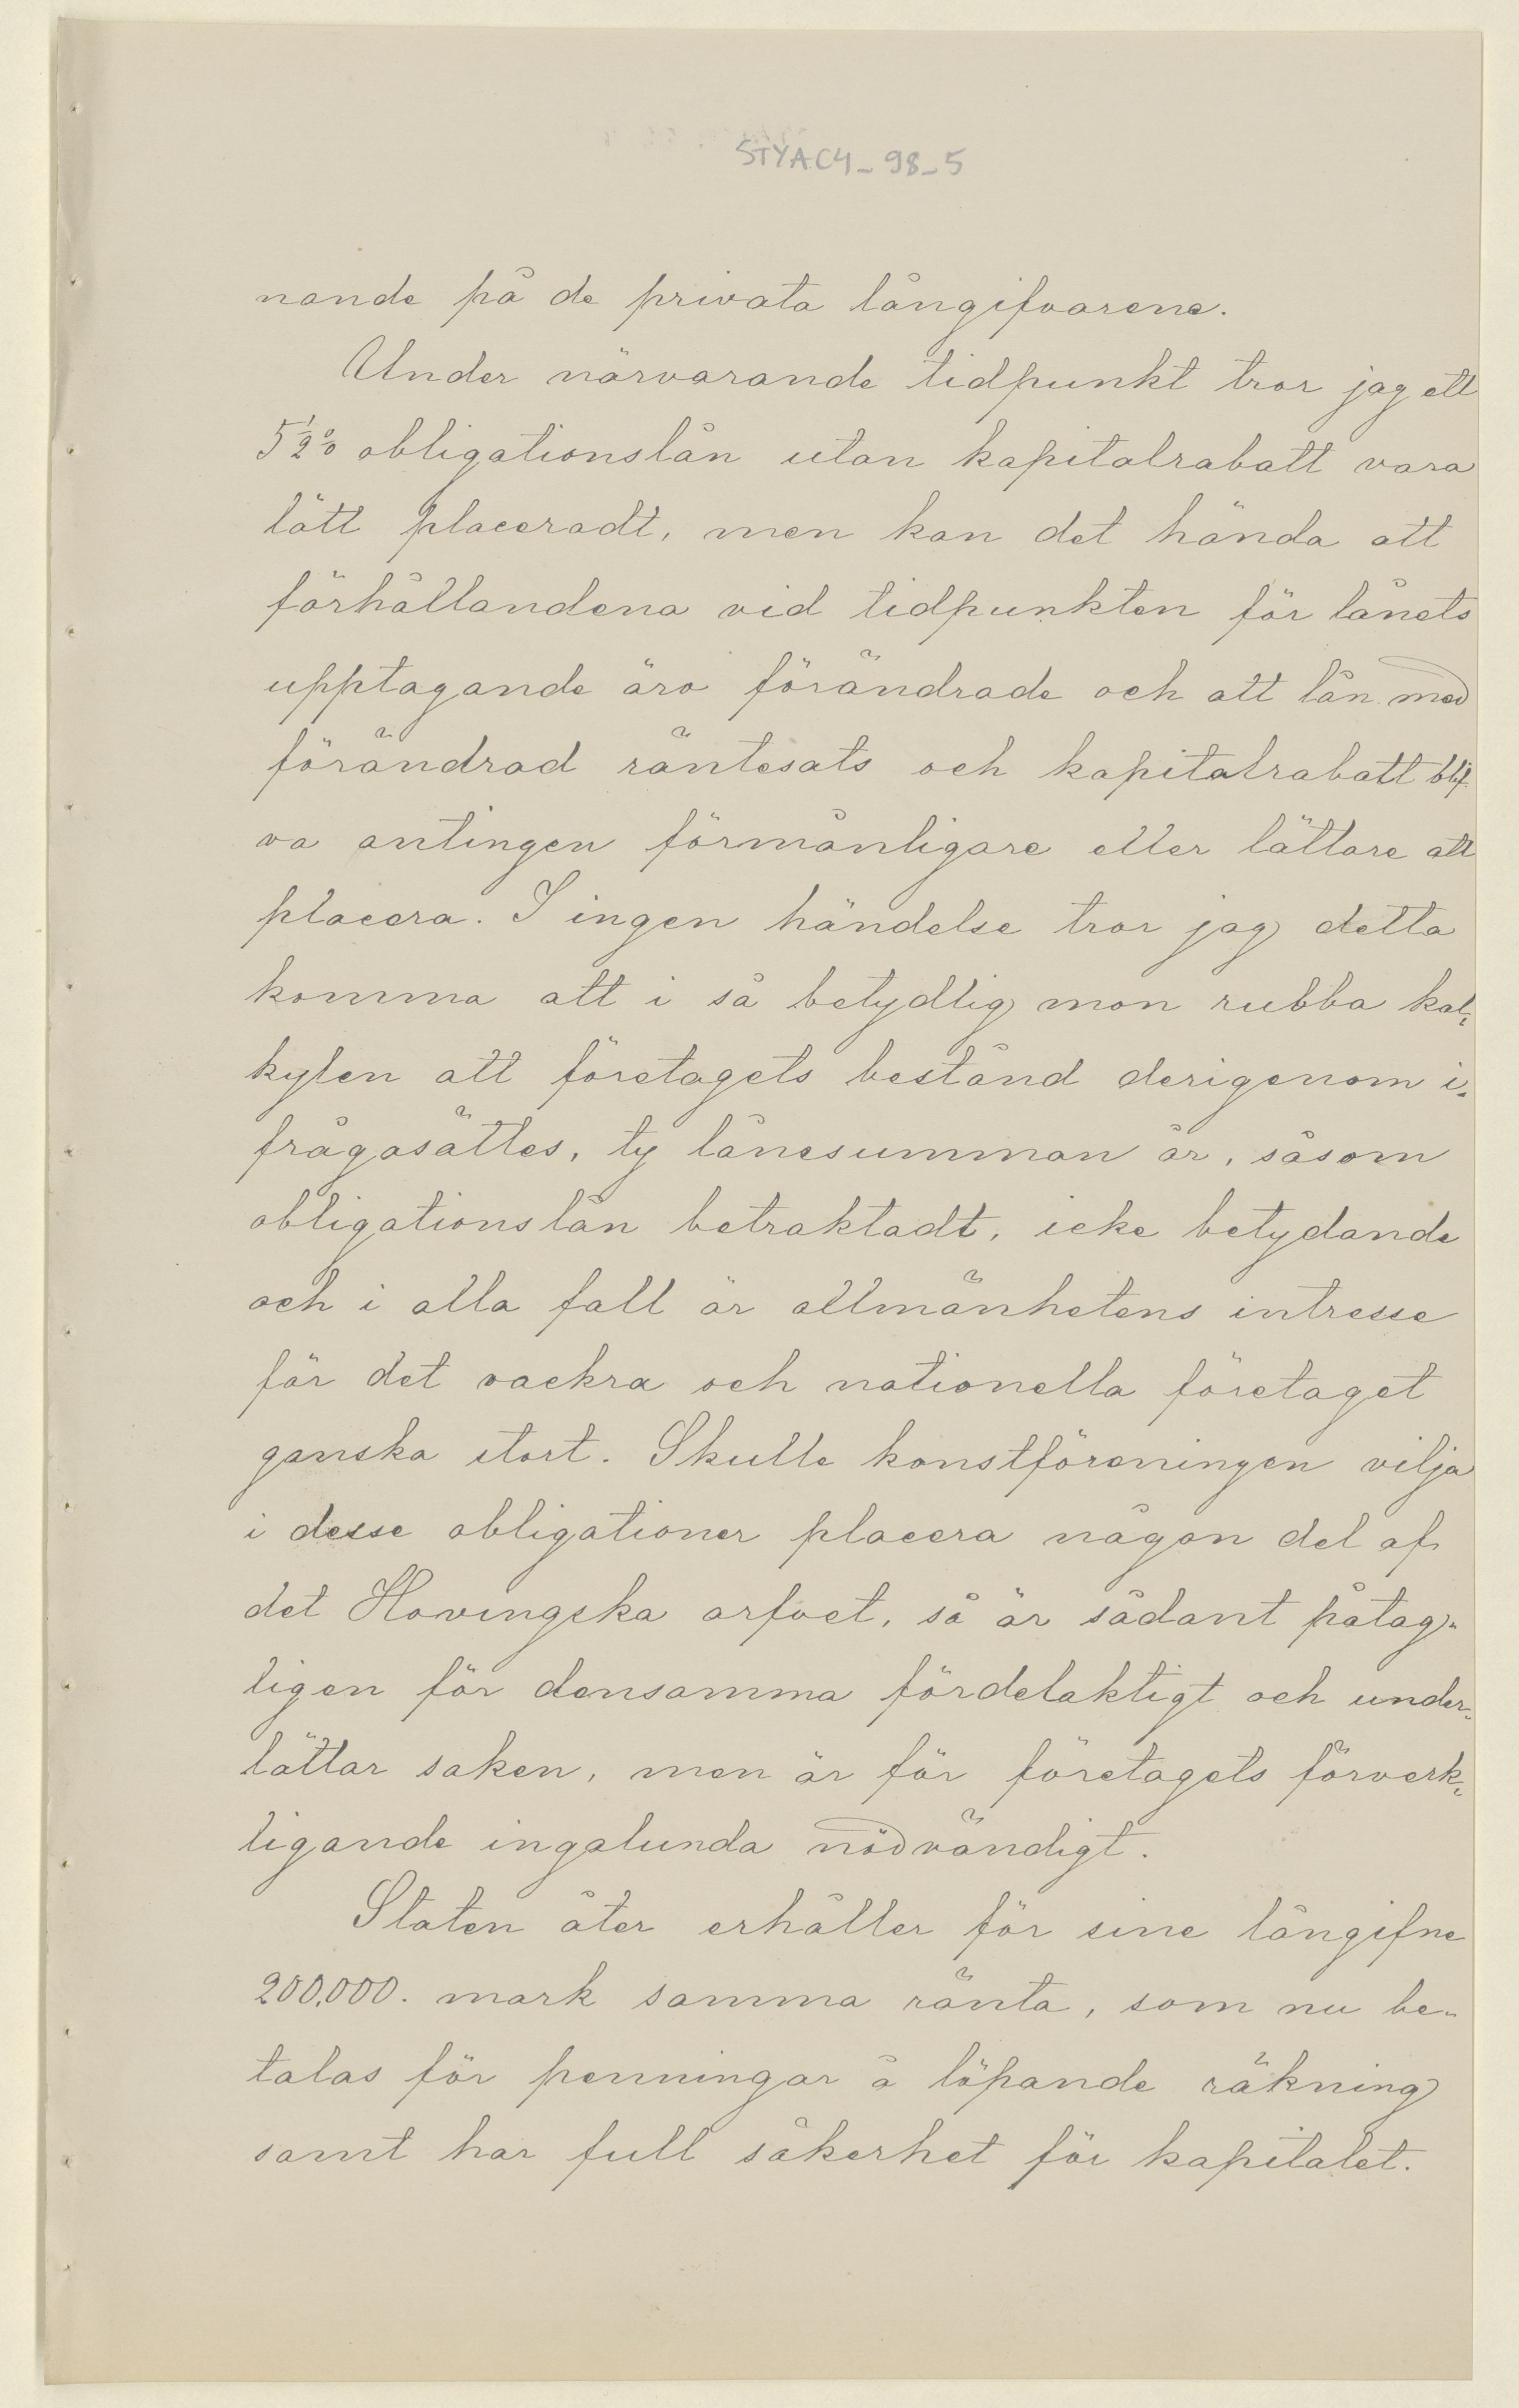 STYAC4_98_5
nande på de privata långifvarene.
Under närvarande tidpunkt tror jag ett
5½% obligationslån utan kapitalrabatt vara
lätt placeradt, men kan det hända att
förhållandena vid tidpunkten för lånets
upptagande äro förändrade och att lån med
förändrad räntesats och kapitalrabatt blif-
va antingen förmånligare eller lättare att
placera. I ingen händelse tror jag detta
komma att i så betydlig mon rubba kal-
kylen att företagets bestånd derigenom i-
frågasättes, ty lånesumman är, såsom
obligationslån betraktadt, icke betydande
och i alla fall är allmänhetens intresse
för det vackra och nationella företaget
ganska stort. Skulle konstföreningen vilja
i desse obligationer placera någon del af
det Hovingska arfvet, så är sådant påtag-
ligen för densamma fördelaktigt och under-
lättar saken, men är för företagets förverk-
ligande ingalunda nödvändigt.
Staten åter erhåller för sine långifne
200,000. mark samma ränta, som nu be-
talas för penningar å löpande räkning
samt har full säkerhet för kapitalet.